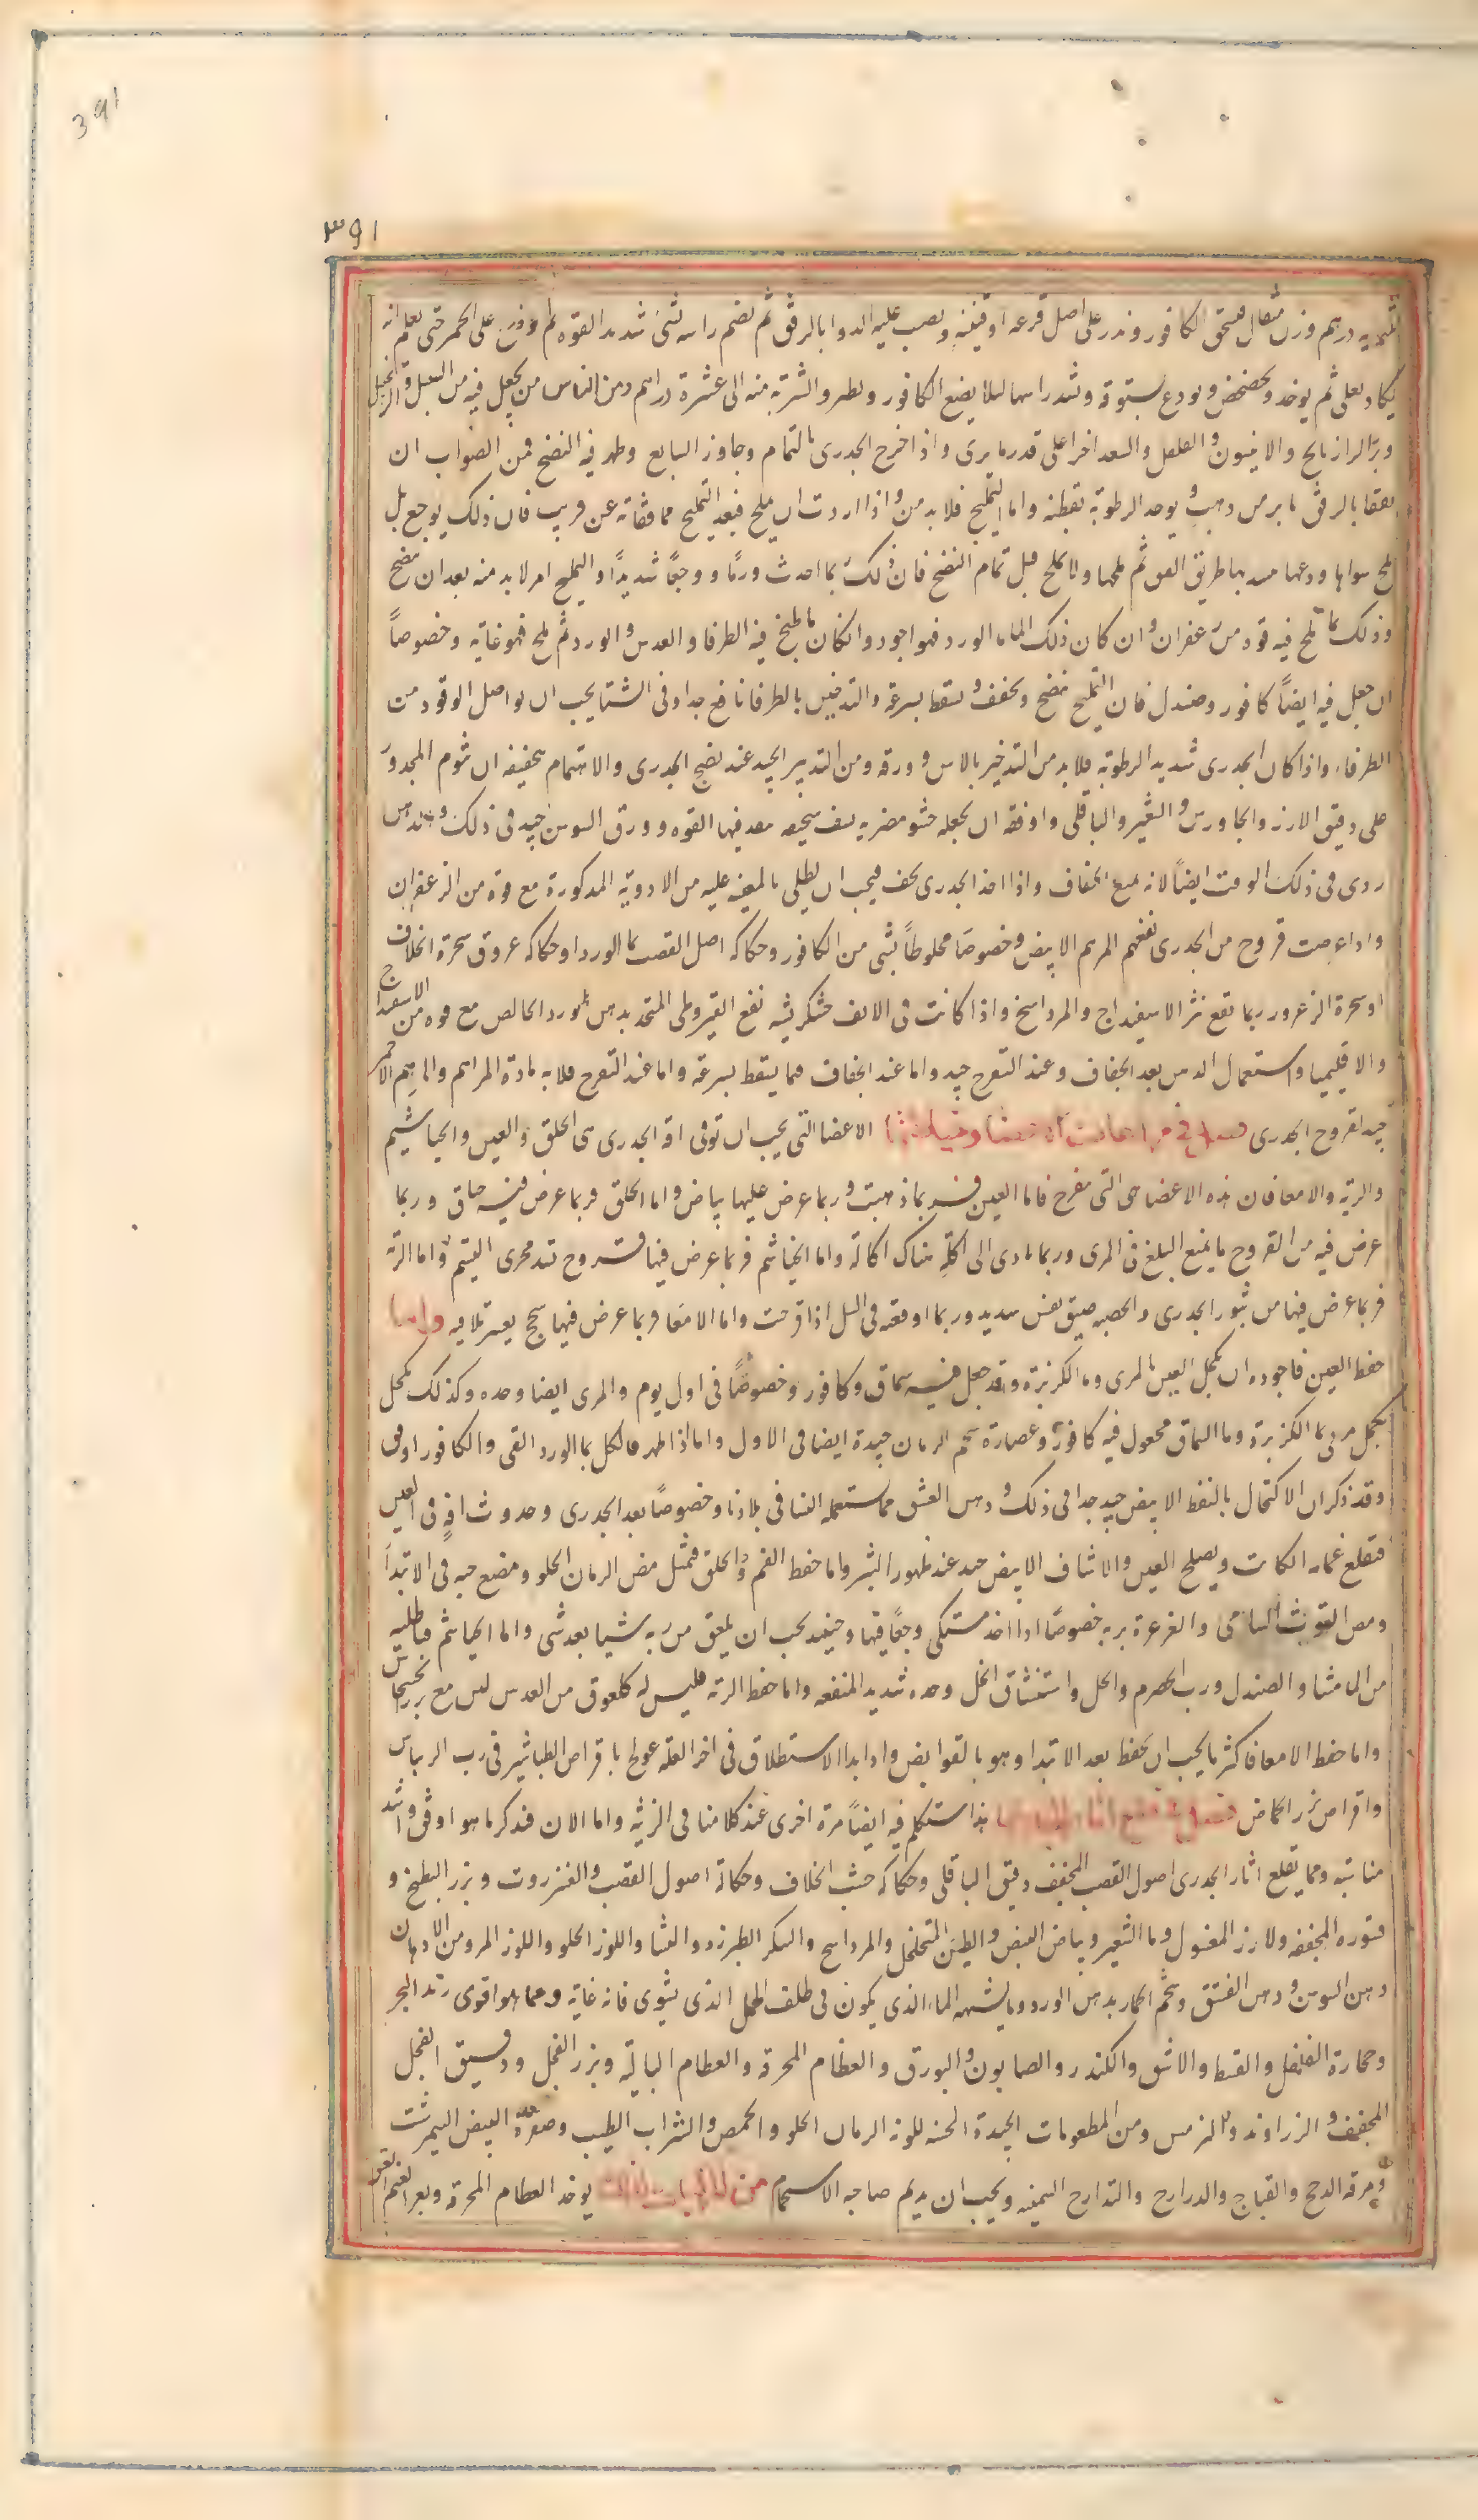 391
٣٩١
درهم وزن مثقال فيسحق الكافور ويذر على اصل قرعه او قنينه ويصب عليه الدوا بالرفق ثم يضم راسه بشئ شديد القوه ثم يوزن على الجمر حتى يعلم انه
يكاد يغلى ثم يوخذ ويخضخض ويودع بستوقة ويشد راسها لئلا يضيع الكافور ويطير والشربة منه الى عشرة دراهم ومن الناس من يجعل فيه من
وبزر الرازيانج والانيسون والفلفل والسعد اخرا على قدر ما يرى واذا خرج الجدرى بالتمام وجاوز السابع وظهر فيه النضج فمن الصواب ان
يفقا بالرفق بابر من ذهب ويوخذ الرطوبة بقطنه واما التمليح فلا بد من واذا اردت ان يملح فبعد التمليح مما فقاته عن قريب فان ذلك يوجع بل
ملح سواها ودعها طريق ثم ملحها ولا يملح قبل تمام النضج فان ذلك ربما احدث ورمًا ووجعًا شديدًا والتمليح امر لابد منه بعد ان نضج
وذلك بما ملح فيه قوة من زعفران وان كان ذلك الماء ما الورد فهو اجود وان كان ما طبخ فيه الطرفا والعدس والورد ثم ملح فهو غاية وخصوصًا
ان جعل فيه ايضًا كافور وصندل فان التمليح ينضج ويجفف ويسقط بسرعة والتدخين بالطرفا نافع جدا وفى الشتا يجب ان يواصل الوقود من
الطرفاء واذا كان الجدرى شديد الرطوبة فلا بد من التدخين بالاس وورقه ومن التدبير الجيد عند نضج الجدرى والاهتمام بتجفيفه ان ينوم المجدور
على دقيق الارز والجاورس والشعير والباقلى واوفقه ان يجعله حشو مضربه سخيفه ينفذ فيها القوه وورق السوسن جيد فى ذلك
ردى فى ذلك الوقت ايضًا لانه يمنع الجفاف واذا اخذ الجدرى يجف فيجب ان يطلى بالمعينه عليه من الادوية المذكورة مع قوة من الزعفران
واذا عرضت قروح من الجدرى نفعهم المرهم الابيض وخصوصًا مخلوطًا بشئ من الكافور وحكاكه اصل القصب بما الورد او حكاكه عروق شجرة الخلاف
او شجرة الزعرور ربما نفع نثر الاسفيداج والمرداسنج واذا كانت فى الانف خشكريشه نفع القيروطى المتخذ بدهن الورد الخالص مع قوه من الاسفيداج
والاقليميا واستعمال الدهن بعد الجفاف وعند التقرح جيد واما عند الجفاف فما يسقط بسرعة واما عند التقرح فلانه مادة المراهم والمرهم الاحمر
جيد لقروح الجدرى فصل فى مراعات الاعضا الاعضا التى يجب ان توقى افة الجدرى هى الحلق والعين والخياشيم
والرية والامعا فان هذه الاعضا هى التى تقرح فاما العين فربما ذهبت وربما عرض عليها بياض واما الحلق فربما عرض فيه خناق وربما
عرض فيه من القروح ما يمنع البلع فى المرى وربما تادى الى اكله هناك اكالة واما الخياشيم فربما عرض فيها قروح تسد مجرى النسيم واما الرية
فربما عرض فيها من بثور الجدرى والحصبه ضيق نفس شديد وربما اوقعه فى السل اذا قرحت واما الامعا فربما عرض فيها سحج يعسر تلافيه واما
حفظ العين فاجوده ان يكحل العين بالمرى وما الكزبرة وقد جعل فيه سماق وكافور وخصوصًا فى اول يوم والمرى ايضا وحده وكذلك كحل
مربى بما الكزبرة وما السماق مجعول فيه كافور وعصارة شحم الرمان جيدة ايضا فى الاول واما اذا ظهر فالكحل بما الورد النقى والكافور اوفق
وقد ذكر ان الاكتحال بالنفط الابيض جيد جدا فى ذلك ودهن الفستق مما يستعمله النسا فى بلادنا وخصوصًا بعد الجدرى وحدوث افه فى العين
فيقلع غمامه ان كانت ويصلح العين والاشياف الابيض جيد عند ظهور البثر واما حفظ الفم والحلق فمثل مص الرمان الحلو ومضغ حبه فى الابتداء
ومص التوث الشامى والغرغرة بربه خصوصًا اذا اخذ يشتكى وجعًا فيها وحينئذ يجب ان يلعق من ربه شيا بعد شئ واما الخياشيم فبطليه
من الماميثا والصندل ورب الحصرم والخل واستنشاق الخل وحده شديد المنفعه واما حفظ الرية فليس له كلعوق من العدس لين مع بزر الخشخاش
واما حفظ الامعا فاكثر ما يجب ان يحفظ بعد الابتدا وهو بالقوابض واذا بدا الاستطلاق فى اخر العله عولج باقراص الطباشير فى رب الريباس
واقراص بزر الحماض فصل فى قلع اثار الجدرى هذا سنتكلم فيه ايضًا مرة اخرى عند كلامنا فى الزينة واما الان فنذكر ما هو اوفق واشد
مناسبه ومما يقلع اثار الجدرى اصول القصب المجفف دقيق الباقلى وحكاكه خشب الخلاف وحكاكة اصول القصب والعنزروت وبزر البطيخ و
قشوره المجففه والارز المغسول وما الشعير وبياض البيض والطين المتخلخل والمرداسنج والسكر الطبرزد والنشا واللوز الحلو واللوز المر ومن الادهان
دهن السوسن ودهن الفستق وشحم الحمار بدهن الورد وما يشبهه الماء الذى يكون فى ظلف الحمل الذى يشوى فانه غاية ومما هو اقوى زبد البحر
وحجارة الفلفل والقسط والاشق والكندر والصابون والبورق والعظام المحرقة والعظام البالية وبزر الفجل ودقيق الفجل
المجفف والزراوند والترمس ومن المطعومات الجيدة المحسنه للونه الرمان الحلو والحمص والشراب الطيب وصفرة البيض النيمرشت
ومرقه الدجج والقباج والدراج والتدارج السمينه ويجب ان يديم صاحبه الاستحمام يوخذ العظام المحرقة وبعر الغنم العتيق